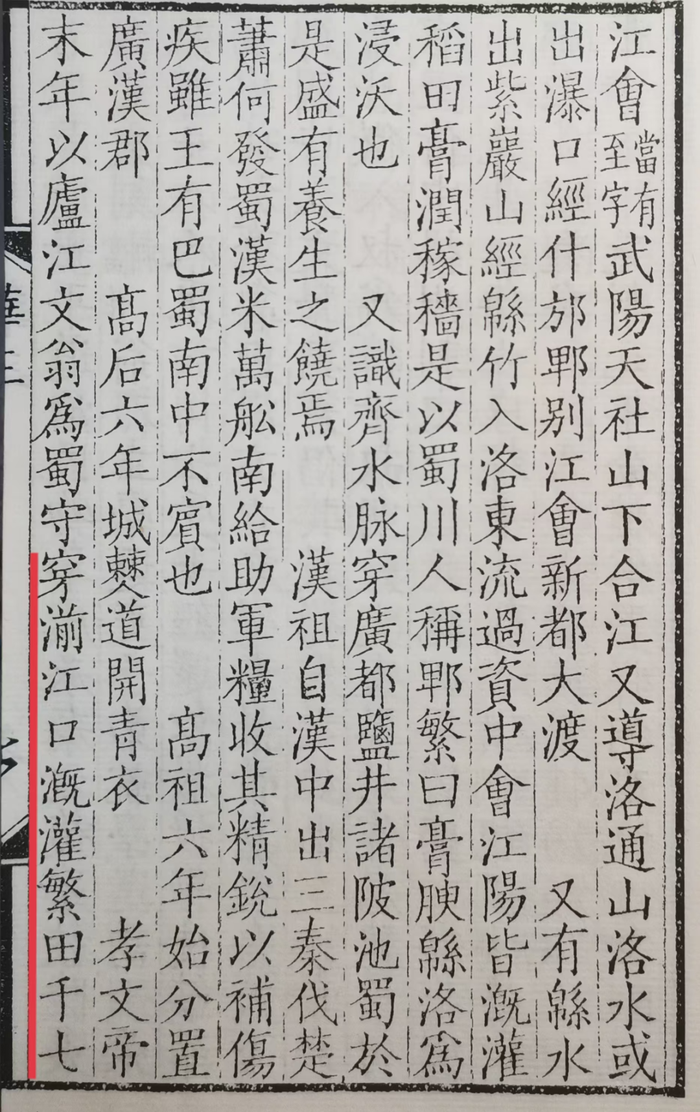 江會當有至字武陽天社山下合江又導洛通山洛水或
出瀑口經什邡郫别江會新都大渡 又有緜水
出紫巖山經緜竹入洛東流過資中會江陽皆溉灌
稻田膏潤稼穡是以蜀川人稱郫繁曰膏腴緜洛爲
浸沃也 又識齊水脉穿廣都鹽井諸陂池蜀於
是盛有養生之饒焉 漢祖自漢中出三秦伐楚
蕭何發蜀漢米萬舩南給助軍糧收其精銳以補傷
疾雖王有巴蜀南中不賔也 髙祖六年始分置
廣漢郡 髙后六年城僰道開青衣 孝文帝
末年以廬江文翁爲蜀守穿湔江口溉灌繁田千七